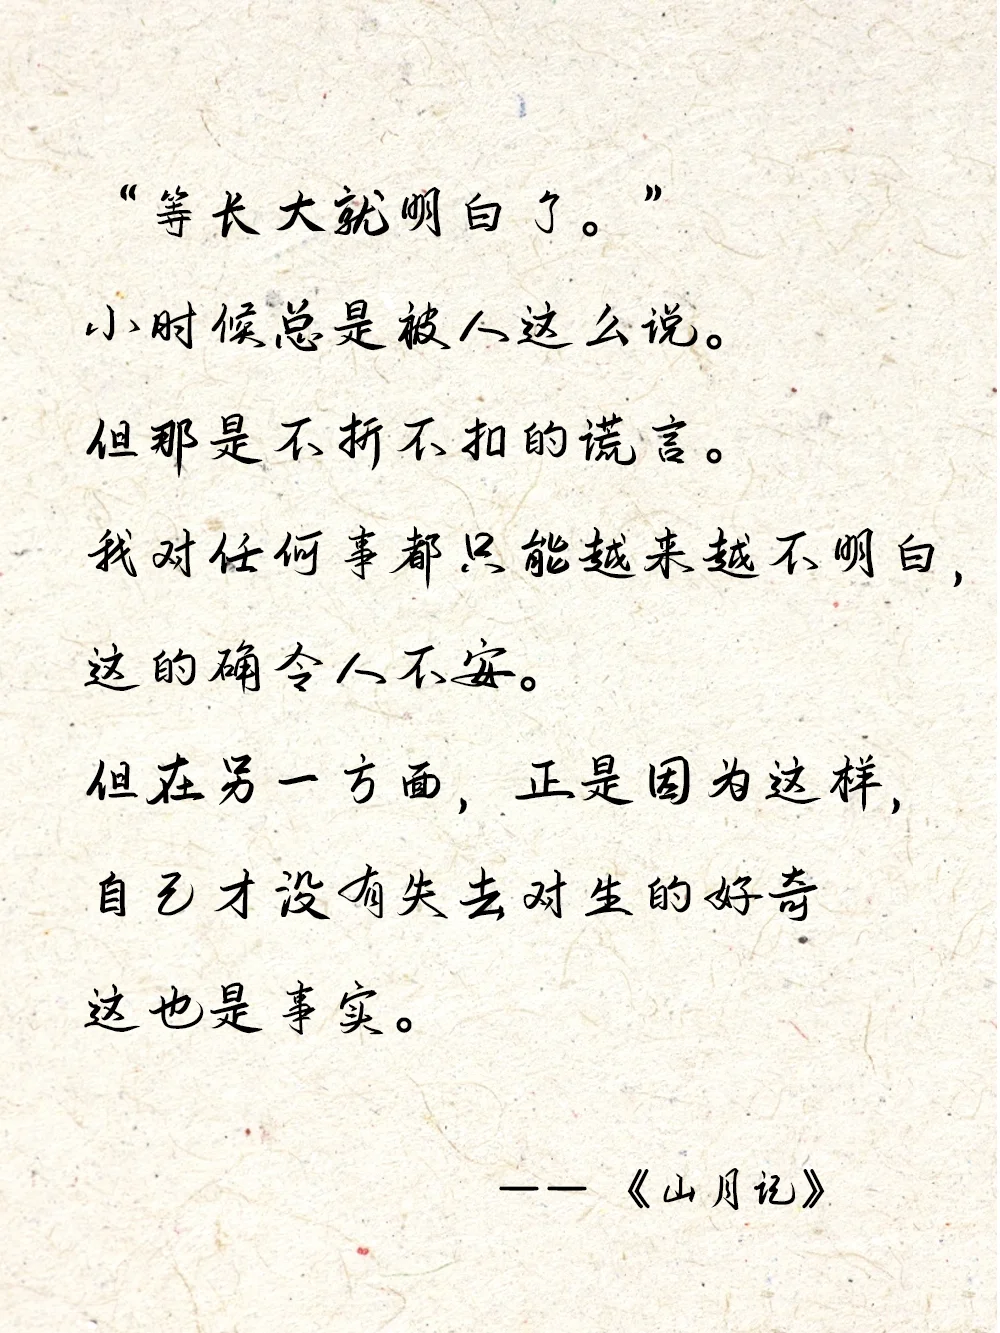 “等长大就明白了。”
小时候总是被人这么说。
但那是不折不扣的谎言。
我对任何事都只能越来越不明白，
这的确令人不安。
但在另一方面，正是因为这样，
自己才没有失去对生的好奇
这也是事实。
——《山月记》